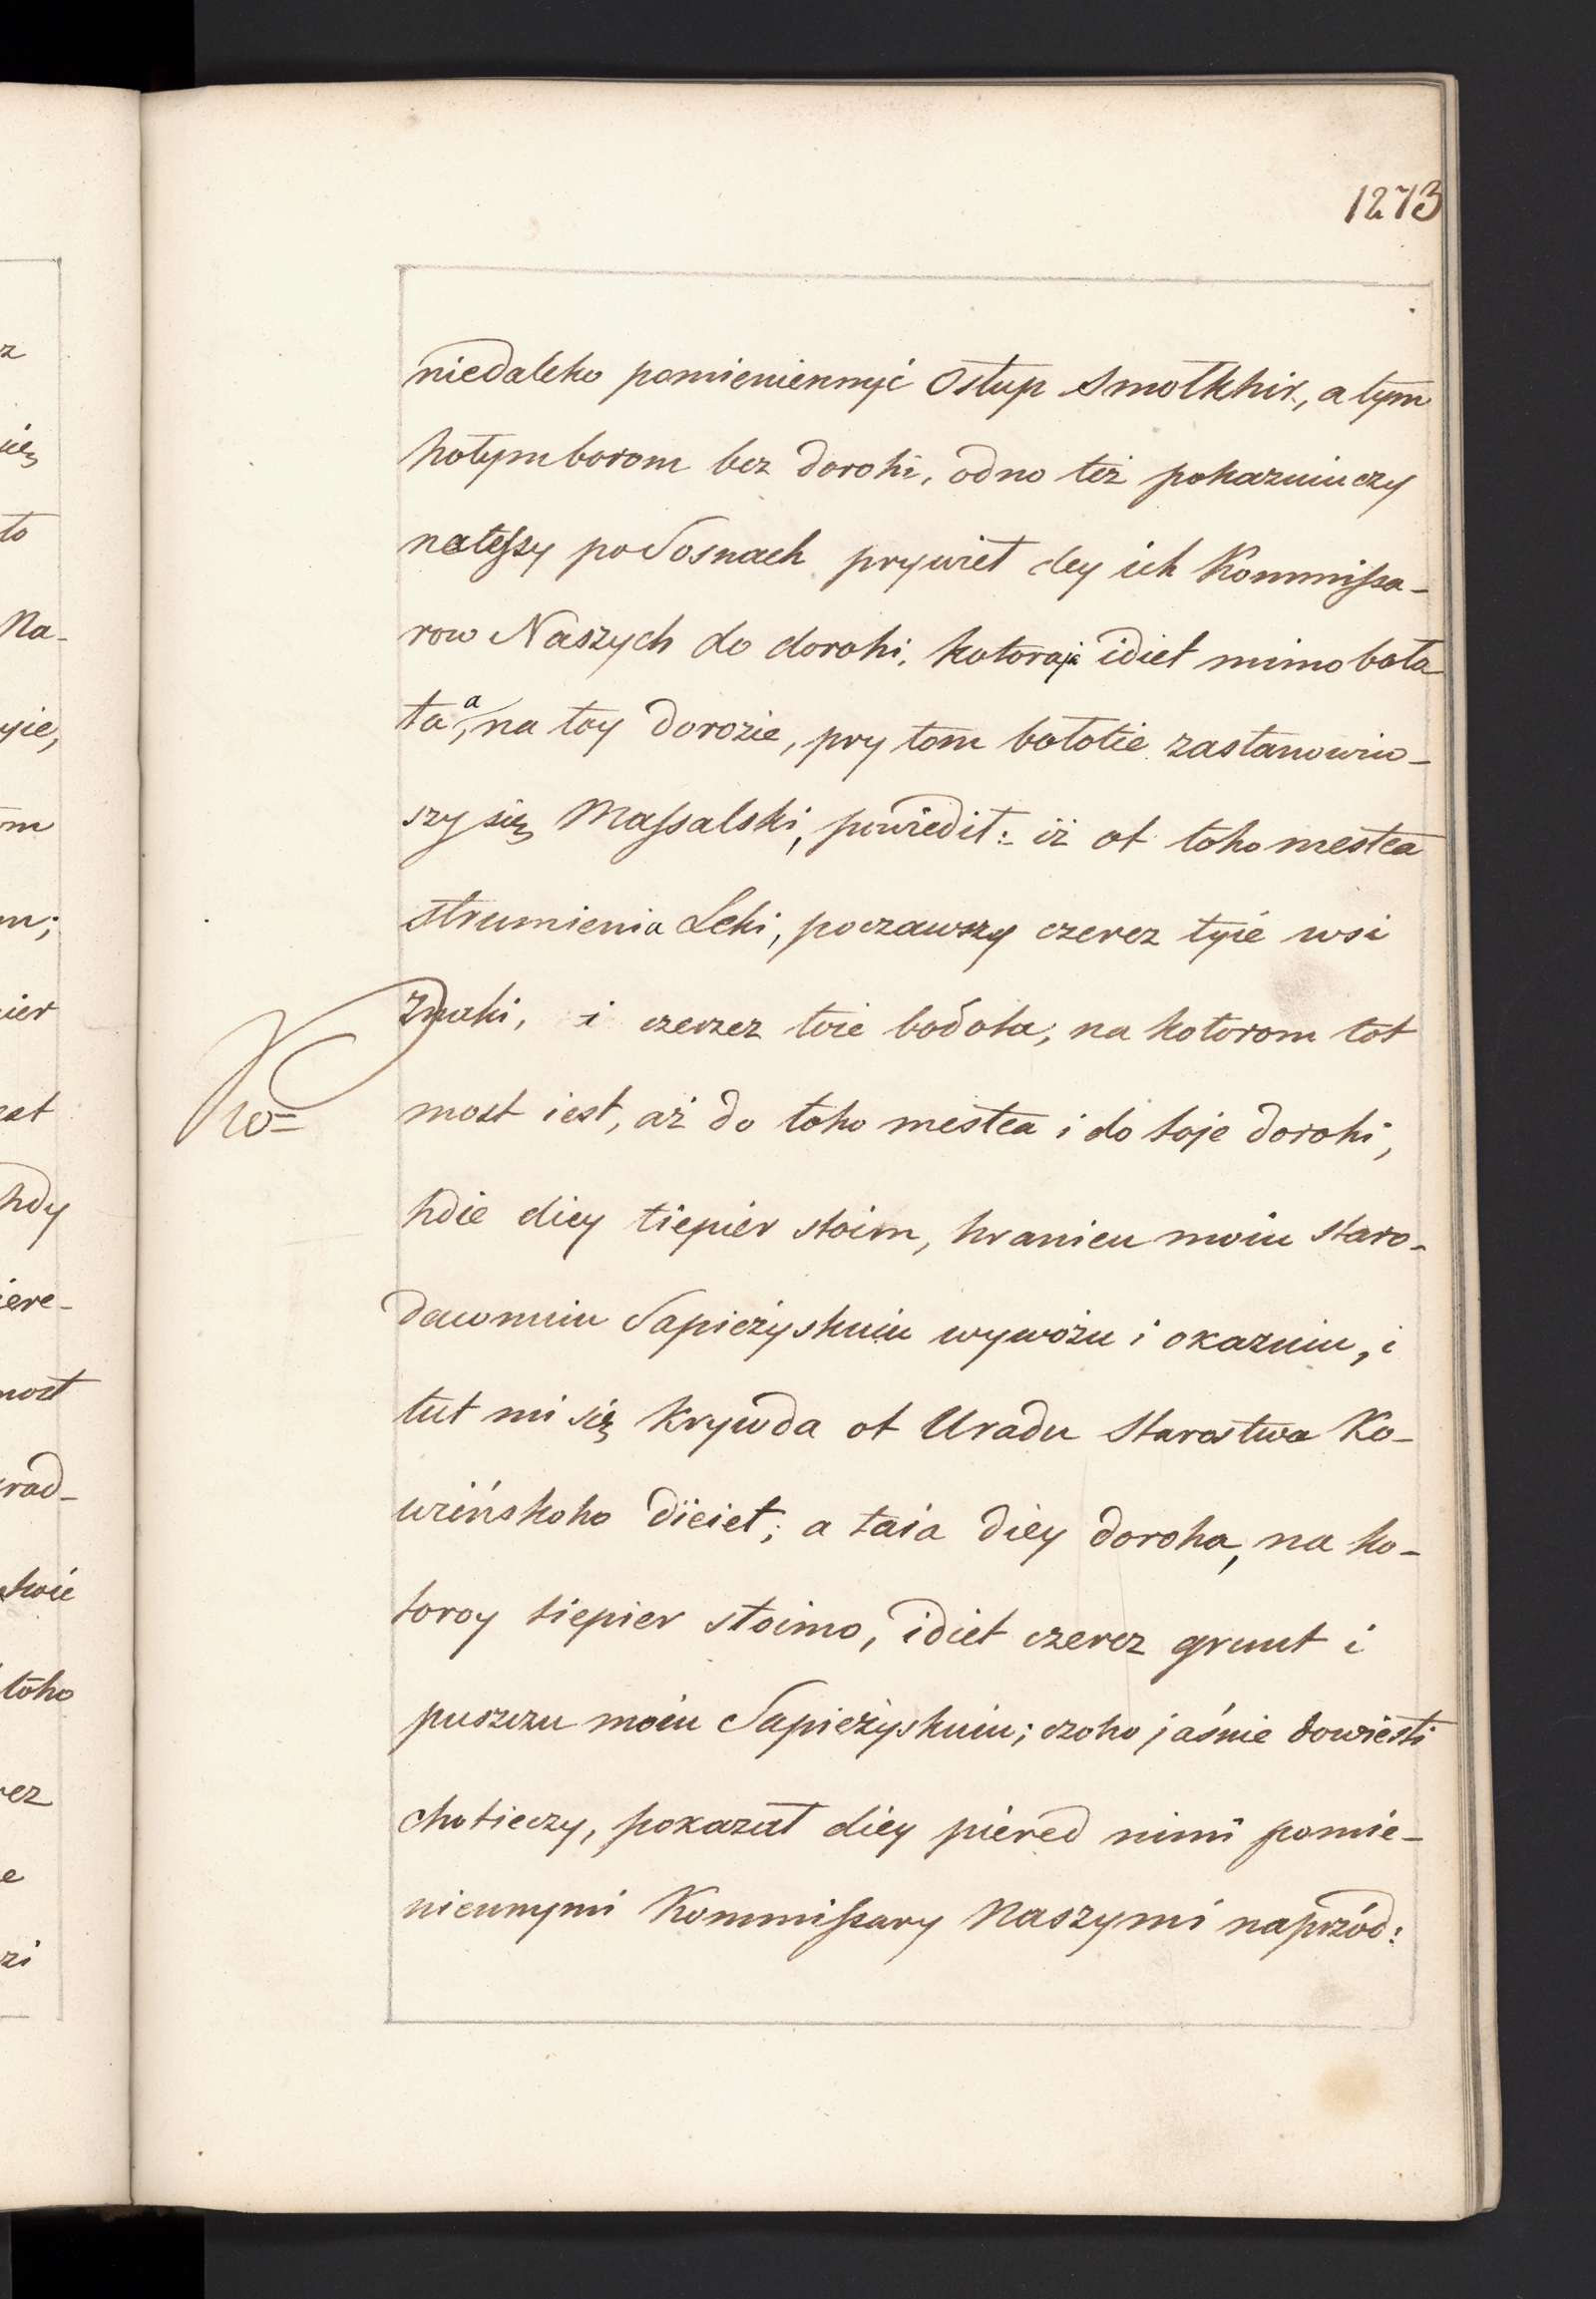 1273
niedaleko pomieniennyć Ostup Smotkhir, a tym
hotym borom bez dorohi, odno też pokazuiuczy
natessy po Sosnach prywiet dey ich Kommissa-
row Naszych do dorohi, kotoraja idiet mimo bota
ta, a na toy dorozie, pry tom bototie zastanowiw-
szy się Massalski, powiedit: iż ot toho mestca
strumienia Leki, poczawszy czerez tyie wsi
Znaki, i czerez toie bodota, na kotorom tot
most iest, aż do toho mestca i do toje dorohi,
hdie diey tiepier stoim, hranicu moiu staro-
dawnuiu Sapieżyskuiu wywożu i okazuiu, i
tut mi się Krywda ot Uradu Starostwa Ko-
wińskoho dieiet; a taia diey doroha, na ko-
toroy tiepier stoimo, idiet czerez grunt i
puszczu moiu Sapieżyskuiu; czoho jaśnie dowiesti
chotieczy, pokazat diey piered nimi pomie-
niennymi Kommissary Naszymi naprzód:
wo=
z
się
to
Na-
yie,
om
m;
ier
est
hdy
iere-
most
rad-
skoie
toho
rez
e
zi